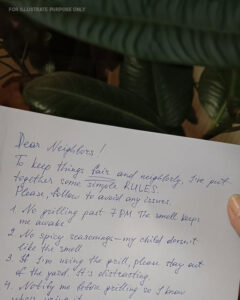 FOR ILLUSTRATE PURPOSE ONLY
Dear Neighbors!
To keep things fair and neighborly, I've put
together some simple RULES.
Please, follow to avoid any issues.
1. No grilling past 7 PM The smell keeps
me awake!
2. No spicy seasonings—my child doesn't
like the smell
3. If I'm using the grill, please stay out
of the yard. It is distracting.
4. Notify me before grilling so I know
using it